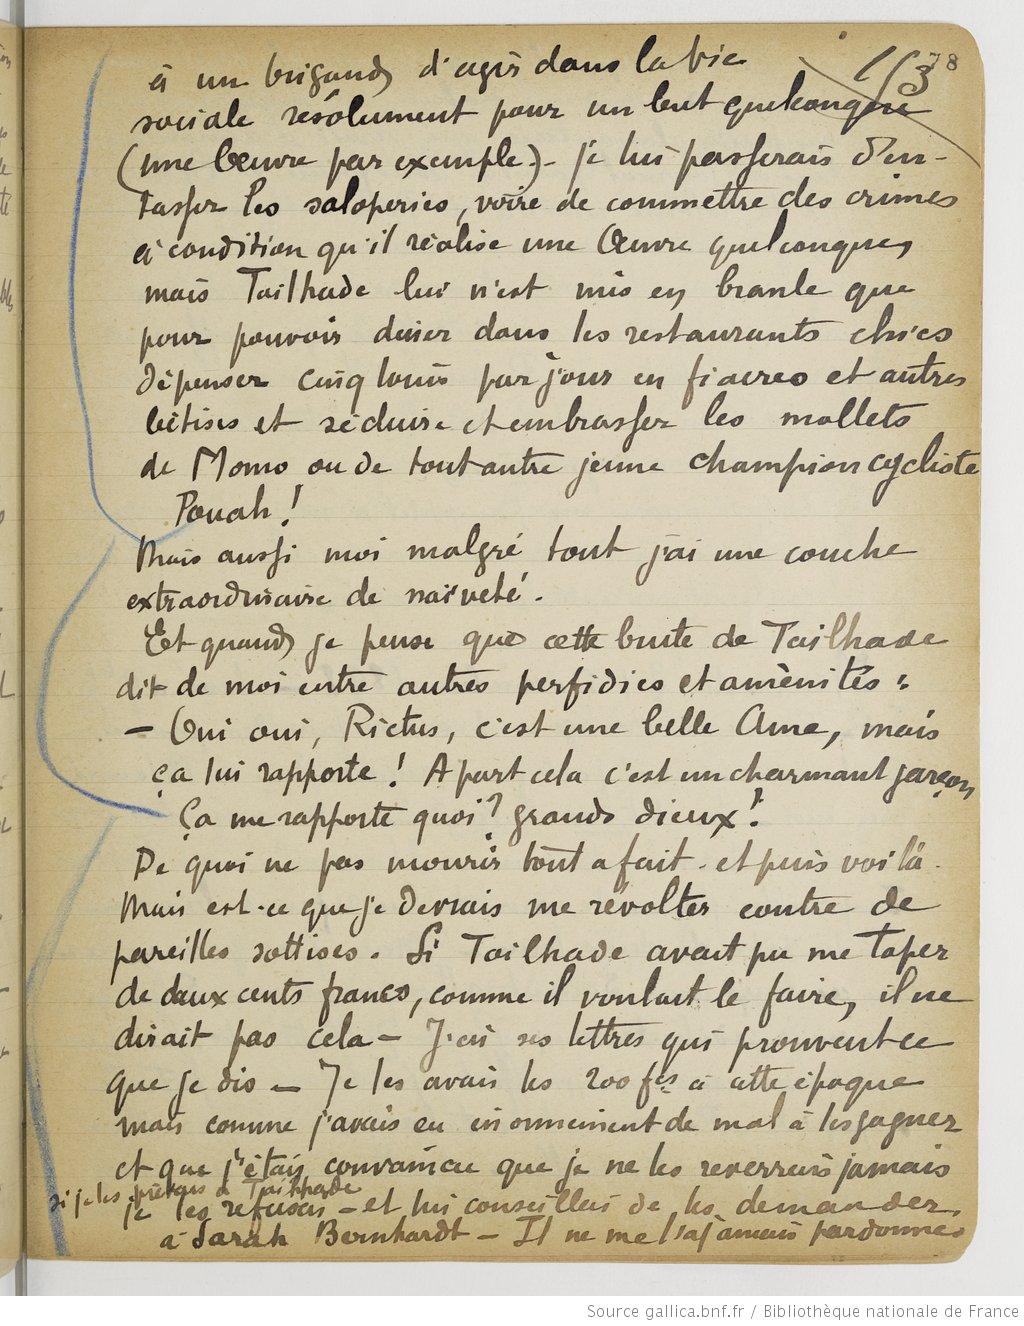 78
153
à un brigand d'agir dans la vie
sociale résolument pour un but quelconque
(une Œuvre par exemple) - je lui passerais d'en-
tasser les saloperies, voire de commettre des crimes
à condition qu'il réalise une Œuvre quelconque,
mais Tailhade lui n'est mis en branle que
pour pouvoir diner dans les restaurants chics
dépenser cinq louis par jour en fiacres et autres
bêtises et séduire et embrasser les mollets
de Momo ou de tout autre jeune champion cycliste
Pouah !
Mais aussi moi malgré tout j'ai une couche
extraordinaire de naïveté.
Et quand je pense que cette brute de Tailhade
dit de moi entre autres perfidies et aménités :
— Oui oui, Rictus, c'est une belle Ame, mais
ça lui rapporte ! A part cela c'est un charmant garçon
Ça me rapporte quoi ? grands dieux !
De quoi ne pas mourir tout a fait - et puis voilà.
Mais est-ce que je devrais me révolter contre de
pareilles sottises. Si Tailhade avait pu me taper
de deux cents francs, comme il voulait le faire, il ne
dirait pas cela — J'ai ses lettres qui prouvent ce
que je dis — Je les avais les 200 fcs à cette époque
mais comme j'avais eu énormément de mal à les gagner
et que j'étais convaincu que je ne les reverrais jamais
si je les prêtais à Tailhade
je les refusai — et lui conseillai de les demander
à Sarah Bernhardt — Il ne me l'a jamais pardonné
Source gallica.bnf.fr / Bibliothèque nationale de France